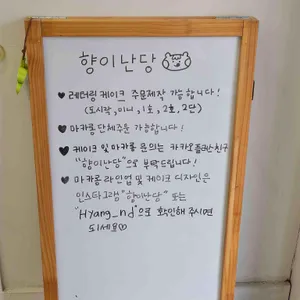 향이난당
♥ 레터링 케이크 주문제작 가능합니다!
(도시락, 미니, 1호, 2호, 2단)
♥ 마카롱 단체주문 가능합니다!
♥ 케이크 및 마카롱 문의는 카카오플러스친구
"향이난당"으로 부탁드립니다!
♥ 마카롱 라인업 및 케이크 디자인은
인스타그램 "향이난당" 또는
"Hyang_nd"으로 확인해 주시면
되세요♡